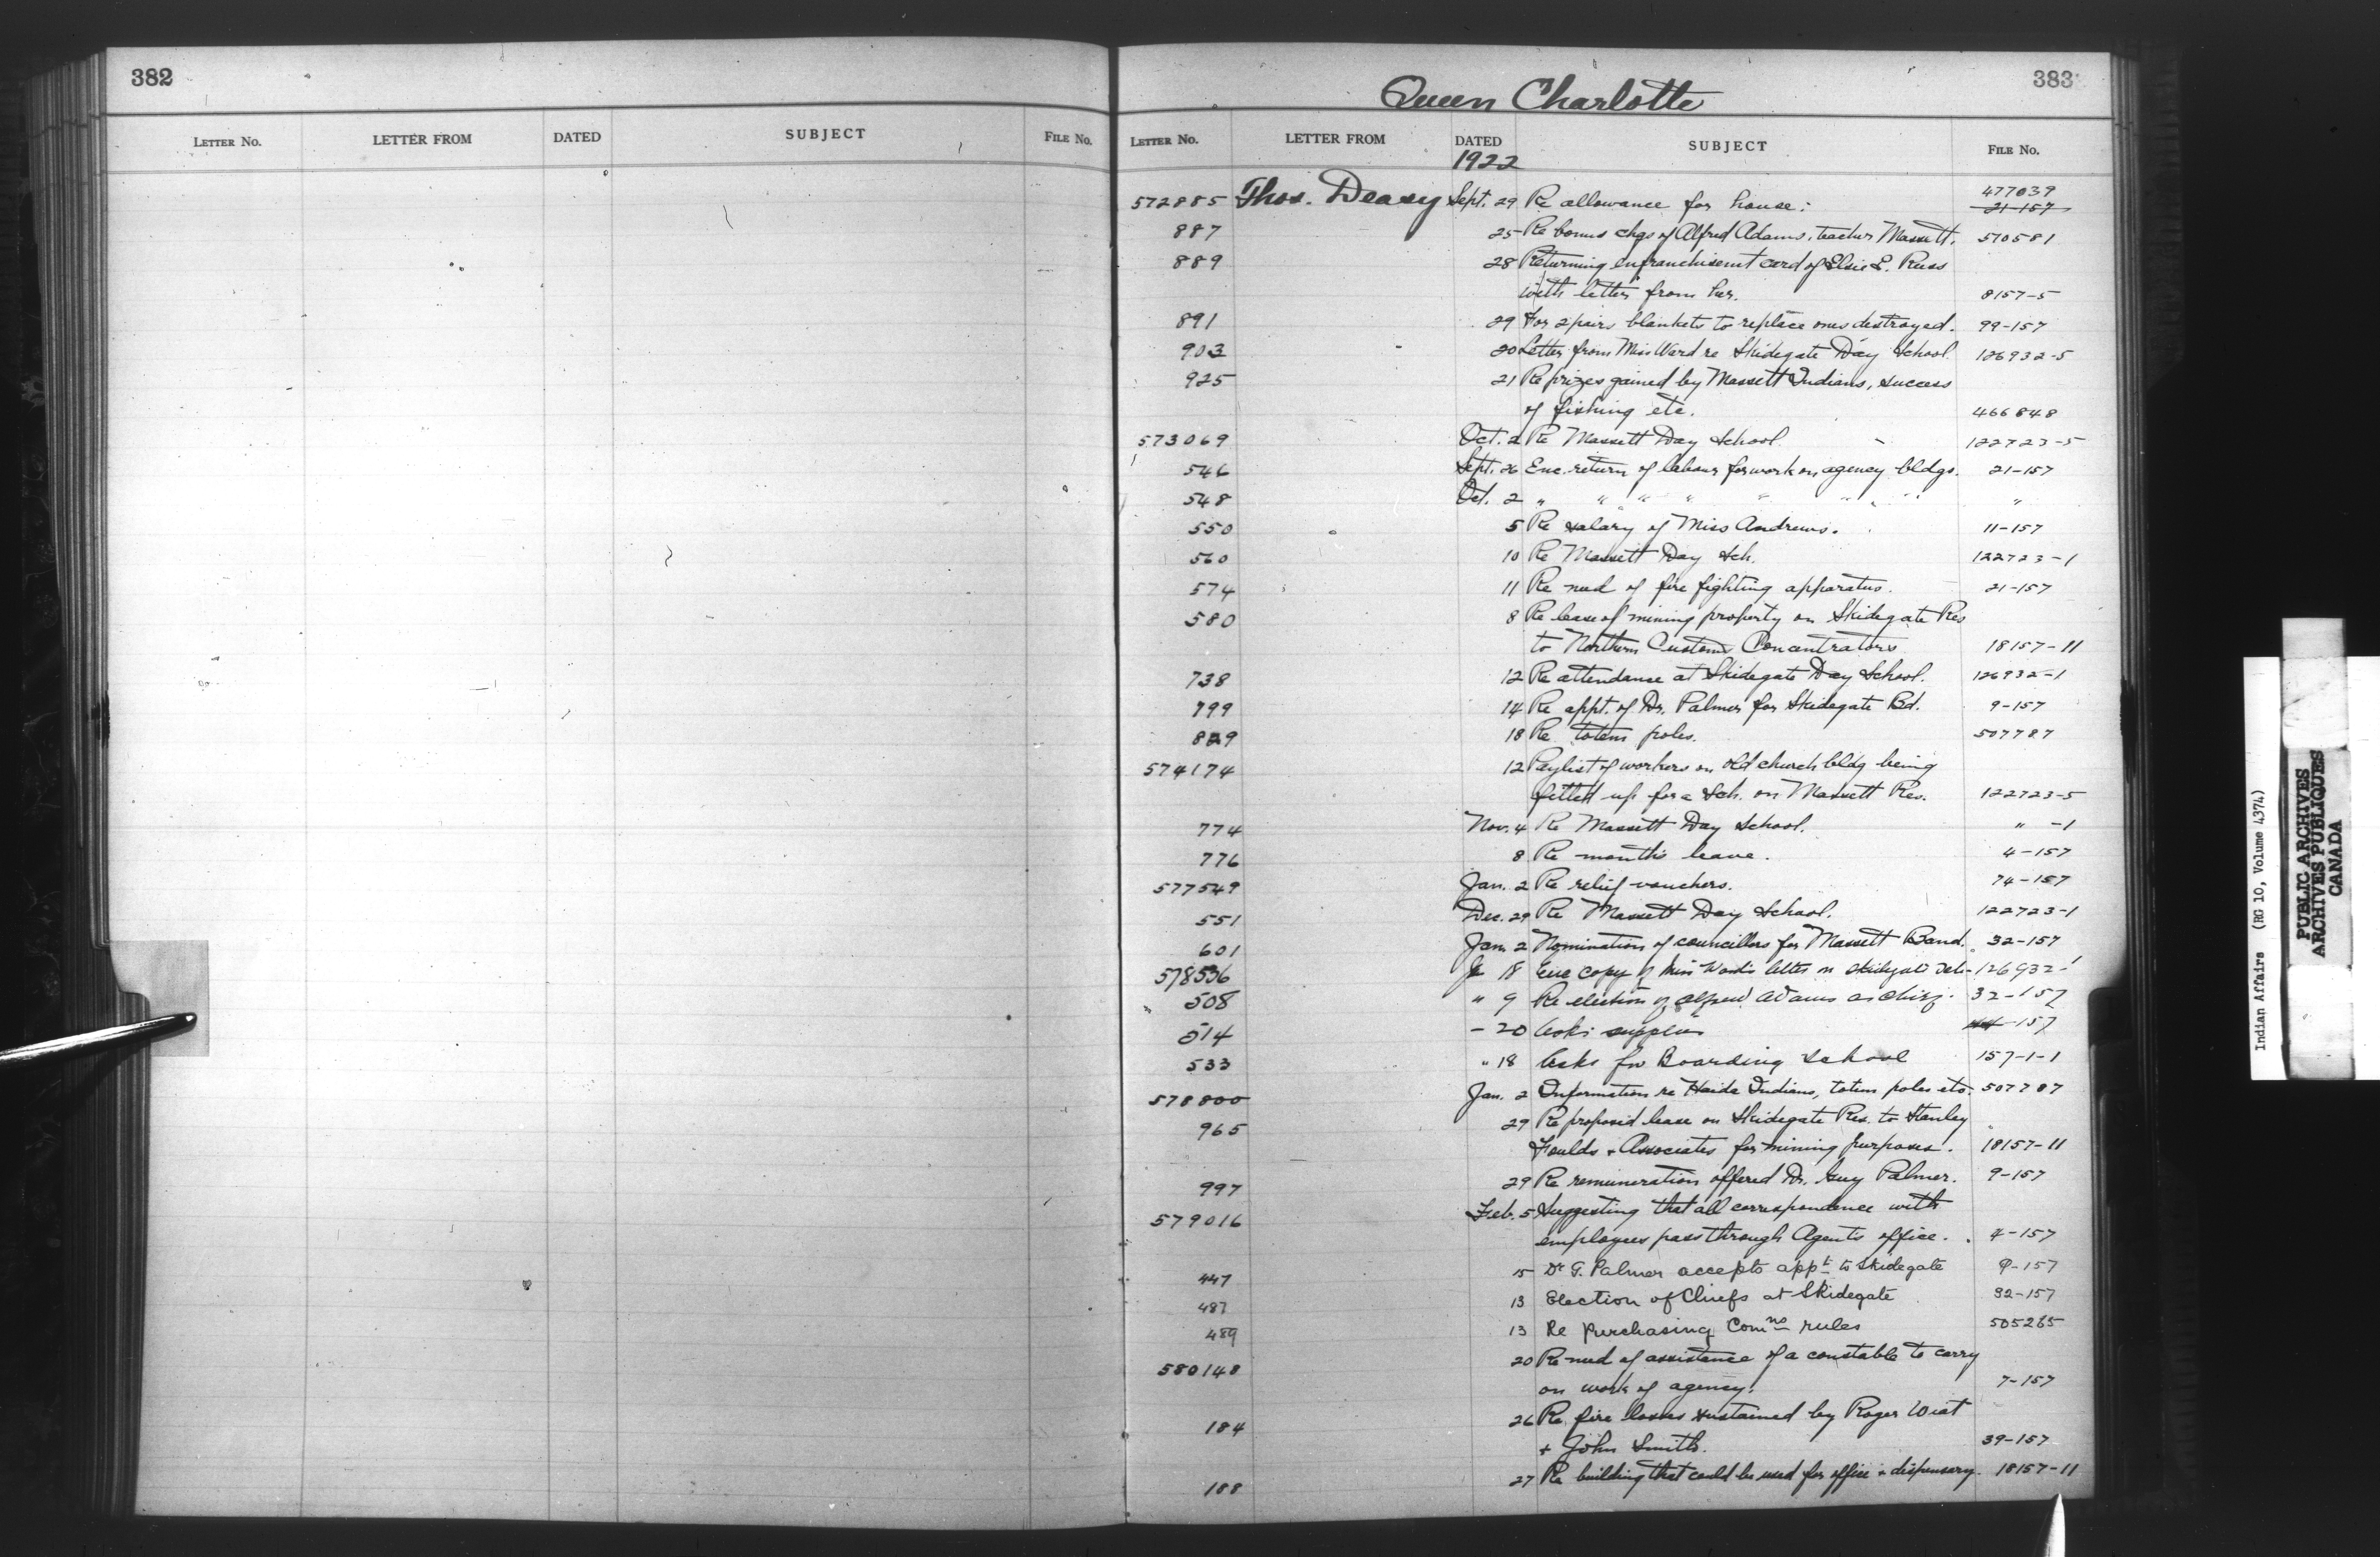 382
LETTER No. LETTER FROM DATED SUBJECT FILE No.
Queen Charlotte 383
LETTER No. LETTER FROM DATED SUBJECT FILE No.
1922
572885 Thos. Deasy Sept. 29 Re allowance for house: 477039
21-157
887 25 Re bonus chgs of Alfred Adams, teacher Massett. 510581
889 28 Returning enfranchisemt card of Elsie E. Russ
with letter from her. 8157-5
891 29 For 2 pairs blankets to replace ones destroyed. 99-157
903 20 Letter from Miss Ward re Skidegate Day School. 126932-5
925 21 Re prizes gained by Massett Indians, success
of fishing etc. 466848
573069 Oct. 2 Re Massett Day School 122723-5
546 Sept. 26 Enc. return of labour for work on agency bldgs. 21-157
548 Oct. 2 " " " " " " " "
550 5 Re salary of Miss Andrews. 11-157
560 10 Re Massett Day Sch. 122723-1
574 11 Re need of fire fighting apparatus. 21-157
580 8 Re lease of mining property on Skidegate Res
to Northern Customs Concentrators 18157-11
738 12 Re attendance at Skidegate Day School. 126932-1
799 14 Re appt. of Dr. Palmer for Skidegate Bd. 9-157
829 18 Re totem poles. 507787
574174 12 Paylist of workers on old church bldg being
fitted up for a Sch. on Massett Res. 122723-5
774 Nov. 4 Re Massett Day School. " -1
776 8 Re months leave. 4-157
577549 Jan. 2 Re relief vouchers. 74-157
551 Dec. 29 Re Massett Day School. 122723-1
601 Jan. 2 Nomination of councillors for Massett Band. 32-157
578506 Ja 18 Enc copy of Miss Ward's letter re Skidgate Sch- 126932-1
508 " 9 Re election of Alfred Adams as chief. 32-157
514 - 20 Asks supplies -157
533 " 18 Asks for Boarding School 157-1-1
578800 Jan. 2 Information re Haida Indians, totem poles etc. 507787
965 29 Re proposed lease on Skidegate Res. to Stanley
Foulds + Associates for mining purposes. 18157-11
997 29 Re remuneration offered Dr. Guy Palmer. 9-157
579016 Feb. 5 Suggesting that all correspondence with
employees pass through Agent's office. 4-157
447 15 Dr G. Palmer accepts appt to Skidegate 9-157
487 13 Election of Chiefs at Skidegate 32-157
489 13 Re purchasing Comns rules 505265
580148 20 Re need of assistance of a constable to carry
on work of agency. 7-157
184 26 Re fire losses sustained by Roger Wiat
+ John Smith. 39-157
188 27 Re building that could be used for office + dispensary. 18157-11
Indian Affairs (RG 10, Volume 4374)
PUBLIC ARCHIVES
ARCHIVES PUBLIQUES
CANADA